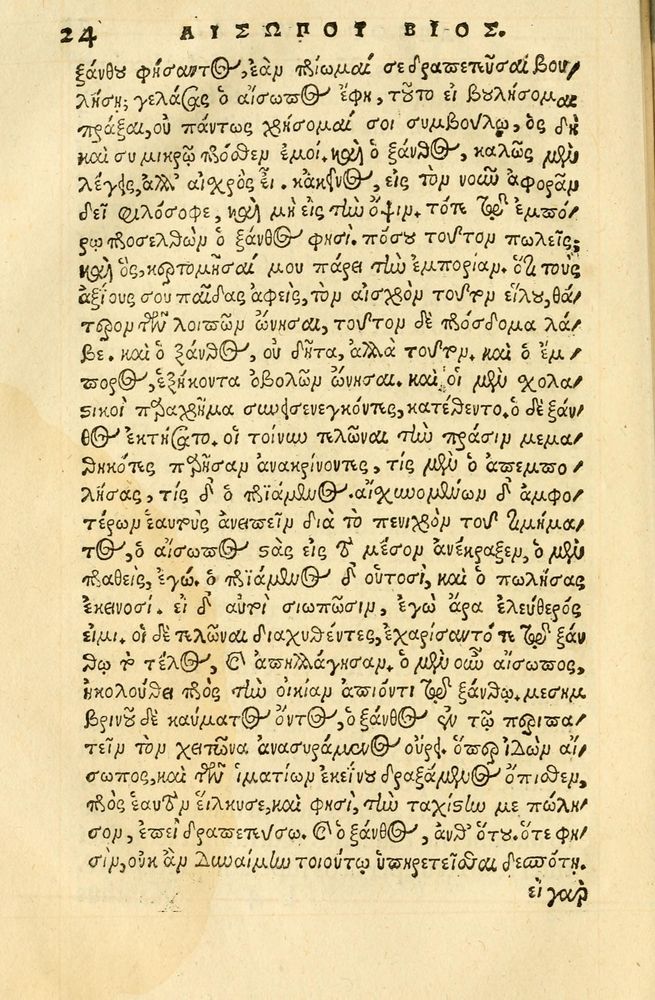 24 ΑΙΣΩΠΟΥ ΒΙΟΣ.
ξάνθου φήσαντος, ἐὰν πρίωμαί σε δραπετεῦσαι βου/
λήσῃ; γελάσας ὁ αἴσωπος ἔφη, τοῦτο εἰ βουλήσομαι
πράξαι, οὐ πάντως χρήσομαί σοι συμβούλῳ, ὃς δὴ
καὶ συ μικρῷ πρόσθεν ἐμοί. καὶ ὁ ξάνθος, καλῶς μὲν
λέγεις, ἀλλ' αἰσχρὸς εἶ. κἀκεῖνος, εἰς τὸν νοῦν ἀφορᾶν
δεῖ φιλόσοφε, καὶ μὴ εἰς τὴν ὄψιν. τότε τῷ ἐμπό/
ρῳ προσελθὼν ὁ ξάνθος φησὶ. πόσου τοῦτον πωλεῖς;
καὶ ὃς, κερτομῆσαί μου πάρει τὴν ἐμπορίαν. ὅτι τοὺς
ἀξίους σου παῖδας ἀφεὶς, τὸν αἰσχρὸν τοῦτον εἵλου, θά/
τερον τῶν λοιπῶν ὤνησαι, τοῦτον δὲ πρόσδομα λά/
βε. καὶ ὁ ξάνθος, οὐ δῆτα, ἀλλὰ τοῦτον. καὶ ὁ ἔμ/
πορος, ἑξήκοντα ὀβολῶν ὤνησαι. καὶ οἱ μὲν σχολα/
στικοὶ παραχρῆμα συνεισενεγκόντες, κατέθεντο. ὁ δὲ ξάν/
θος ἐκτήσατο. οἱ τοίνυν τελῶναι τὴν πρᾶσιν μεμα/
θηκότες παρῆσαν ἀνακρίνοντες, τίς μὲν ὁ ἀπεμπο/
λήσας, τίς δ' ὁ πριάμενος. αἰσχυνομένων δ' ἀμφο/
τέρων ἑαυτοὺς ἀνειπεῖν διὰ τὸ πενιχρὸν τοῦ τιμήμα/
τος, ὁ αἴσωπος στὰς εἰς τὸ μέσον ἀνέκραξεν, ὁ μὲν
πραθεὶς, ἐγώ. ὁ πριάμενος δ' οὑτοσὶ, καὶ ὁ πωλήσας
ἐκεινοσί. εἰ δ' αὐτοὶ σιωπῶσιν, ἐγὼ ἄρα ἐλεύθερός
εἰμι. οἱ δὲ τελῶναι διαχυθέντες, ἐχαρίσαντό τε τῷ ξάν
θῳ τὸ τέλος, καὶ ἀπηλλάγησαν. ὁ μὲν οὖν αἴσωπος,
ἠκολούθει πρὸς τὴν οἰκίαν ἀπιόντι τῷ ξάνθῳ. μεσημ
βρινοῦ δὲ καύματος ὄντος, ὁ ξάνθος ἐν τῷ περιπα/
τεῖν τὸν χιτῶνα ἀνασυράμενος οὔρει. ὅπερ ἰδὼν αἴ/
σωπος, καὶ τῶν ἱματίων ἐκείνου δραξάμενος ὄπισθεν,
πρὸς ἑαυτὸν εἵλκυσε, καὶ φησὶ, τὴν ταχίστην με πώλη/
σον, ἐπεὶ δραπετεύσω. καὶ ὁ ξάνθος, ἀνθ' ὅτου. ὅτε φη/
σὶν, οὐκ ἂν δυναίμην τοιούτῳ ὑπηρετεῖσθαι δεσπότῃ.
εἰ γὰρ